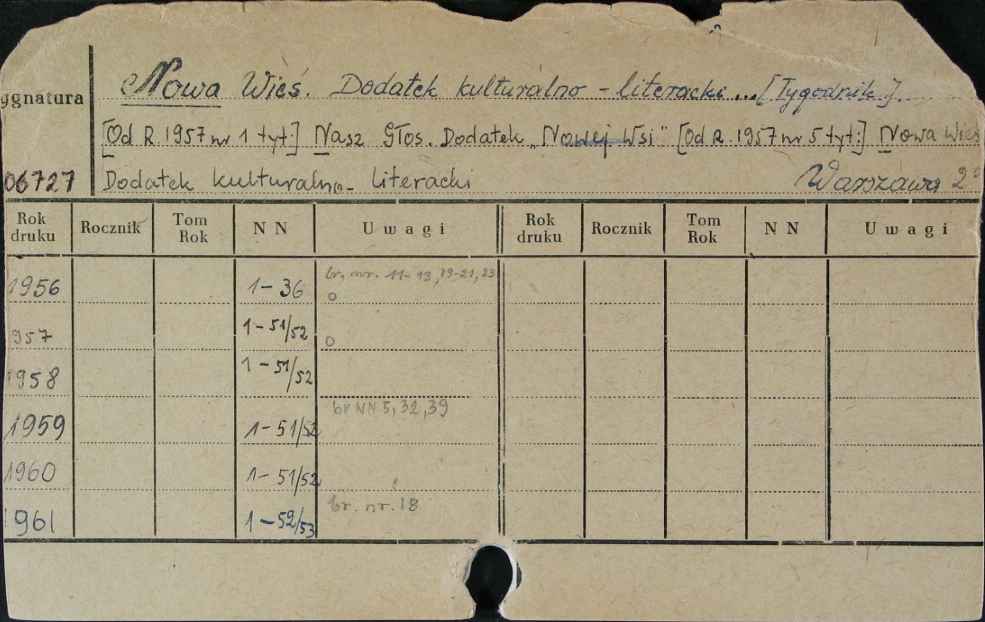 Nowa Wieś. Dodatek kulturalno-literacki...[Tygodnik.]
ygnatura
[Od R. 1957 nr 1 tyt:] Nasz Głos. Dodatek „Nowej Wsi" [Od R. 1957 nr 5 tyt:] Nowa Wieś
06727 Dodatek kulturalno-literacki Warszawa 2°
Rok druku Rocznik Tom Rok NN Uwagi Rok druku Rocznik Tom Rok NN Uwagi
1956 1-36 br. nr. 11-13, 19-21, 23 o
957 1-51/52 o
1958 1-51/52
1959 1-51/52 br NN 5, 32, 39
1960 1-51/52
1961 1-52/53 br. nr. 18